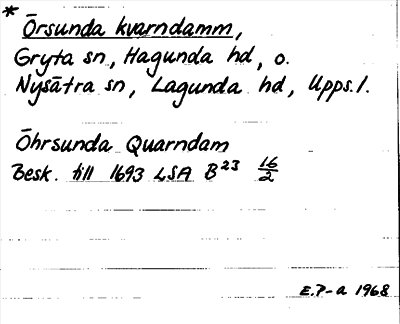 * Örsunda kvarndamm,
Gryta sn, Hagunda hd, o.
Nysätra sn, Lagunda hd, Upps. l.
Öhrsunda Quarndam
Besk. till 1693 LSA B 23 16/2
E.P-a 1968